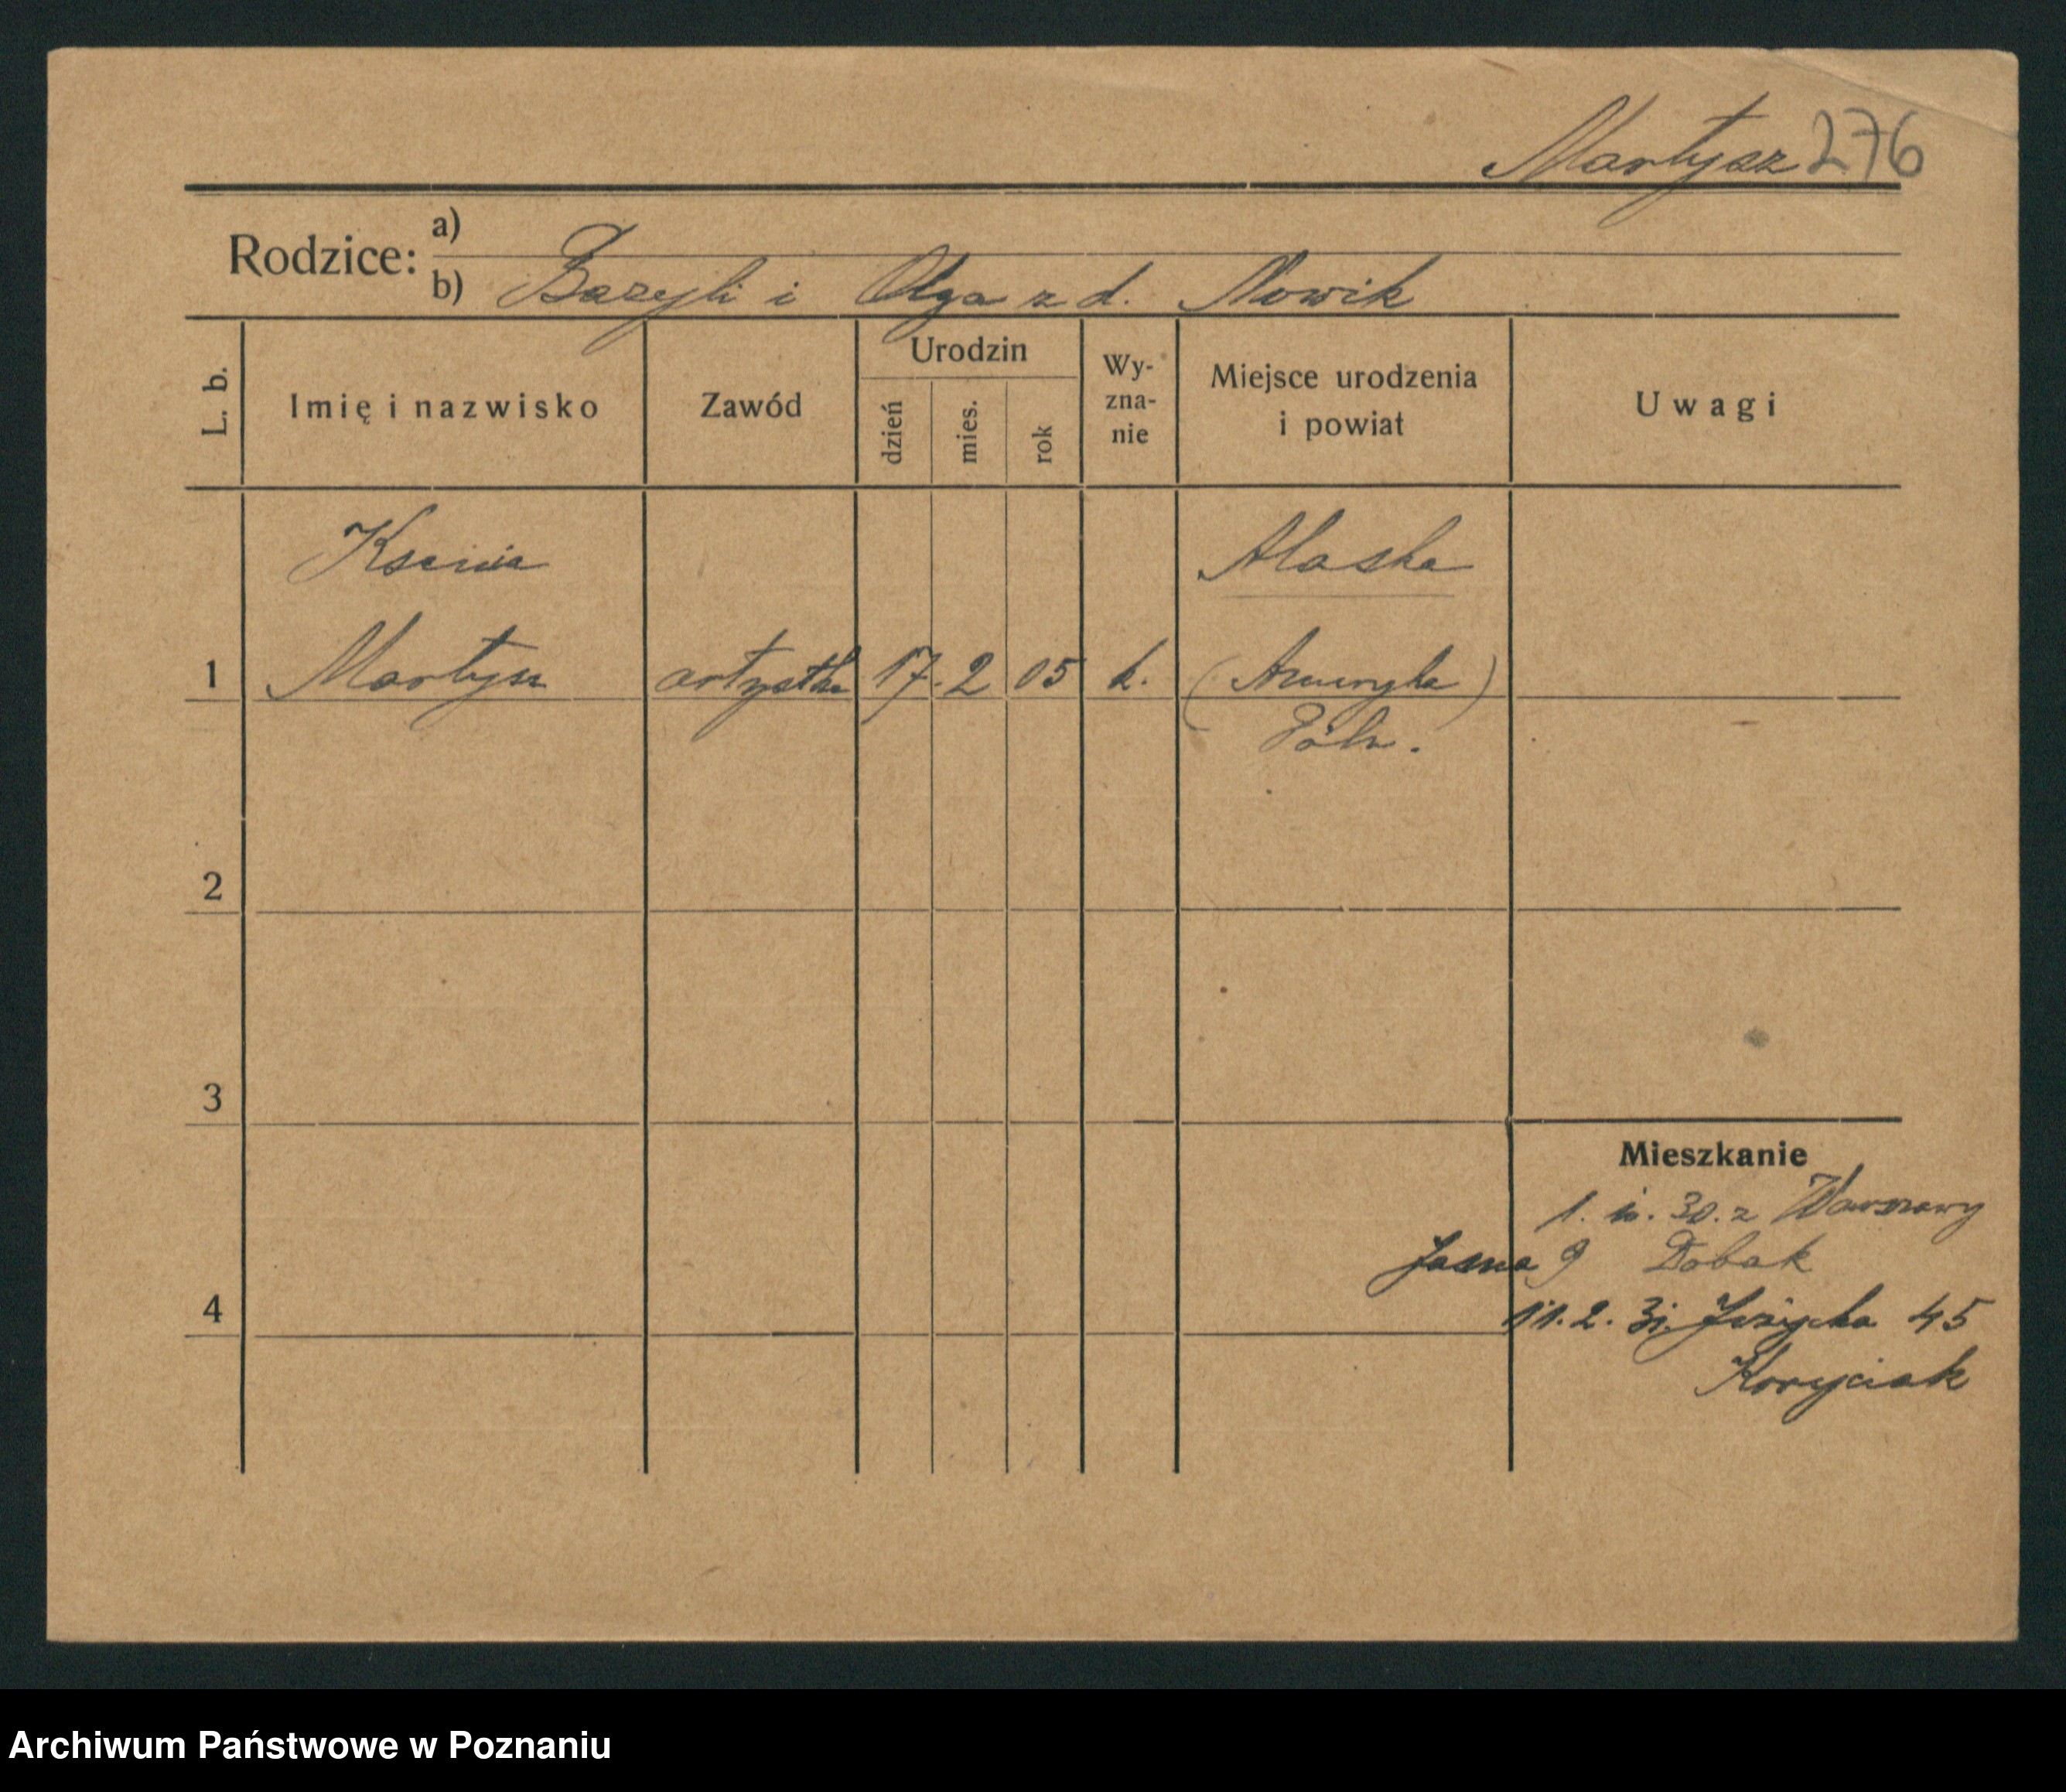 Martysz 276
Rodzice: a)
b) Bazyli i Olga z d. Nowik
L. b. Imię i nazwisko Zawód Urodzin dzień mies. rok Wy-zna-nie Miejsce urodzenia i powiat Uwagi
Ksenia Alaska
1 Martysz artystka 17. 2 05 k. (Ameryka)
Półn.
2
3
Mieszkanie
30. z Warszawy
Jasna 9 Dobak
4 11. 2. 31. Jeżycka 45
Koryciak
Archiwum Państwowe w Poznaniu